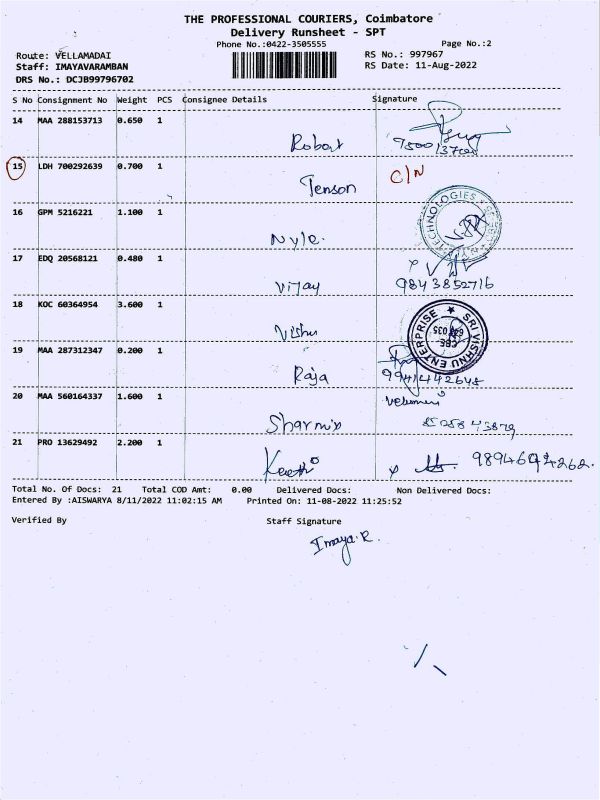 THE PROFESSIONAL COURIERS, Coimbatore
Delivery Runsheet - SPT
Phone No.:0422-3505555 Page No.:2
Route: VELLAMADAI RS No.: 997967
Staff: IMAYAVARAMBAN RS Date: 11-Aug-2022
DRS No.: DCJB99796702
S No Consignment No Weight PCS Consignee Details Signature
14 MAA 288153713 0.650 1
Robert
15 LDH 700292639 0.700 1 C/N
Tenson
16 GPM 5216221 1.100 1
TECHNOLOGIES
Nyle.
17 EDQ 20568121 0.480 1
Vijay 9843852716
18 KOC 60364954 3.600 1
Vishnu SRI VISHNU ENTERPRISE
CBE
19 MAA 287312347 0.200 1
Raja 9941442648
20 MAA 560164337 1.600 1
Sharmix
21 PRO 13629492 2.200 1
Keerthi
Total No. Of Docs: 21 Total COD Amt: 0.00 Delivered Docs: Non Delivered Docs:
Entered By :AISWARYA 8/11/2022 11:02:15 AM Printed On: 11-08-2022 11:25:52
Verified By Staff Signature
Imaya.R.